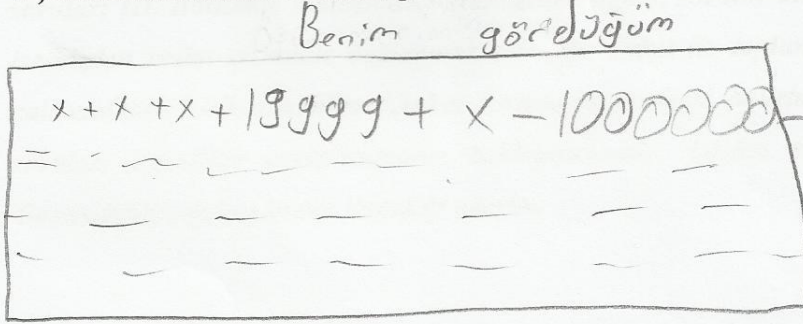 Benim gördüğüm
x + x + x + 19999 + x - 1000000
=